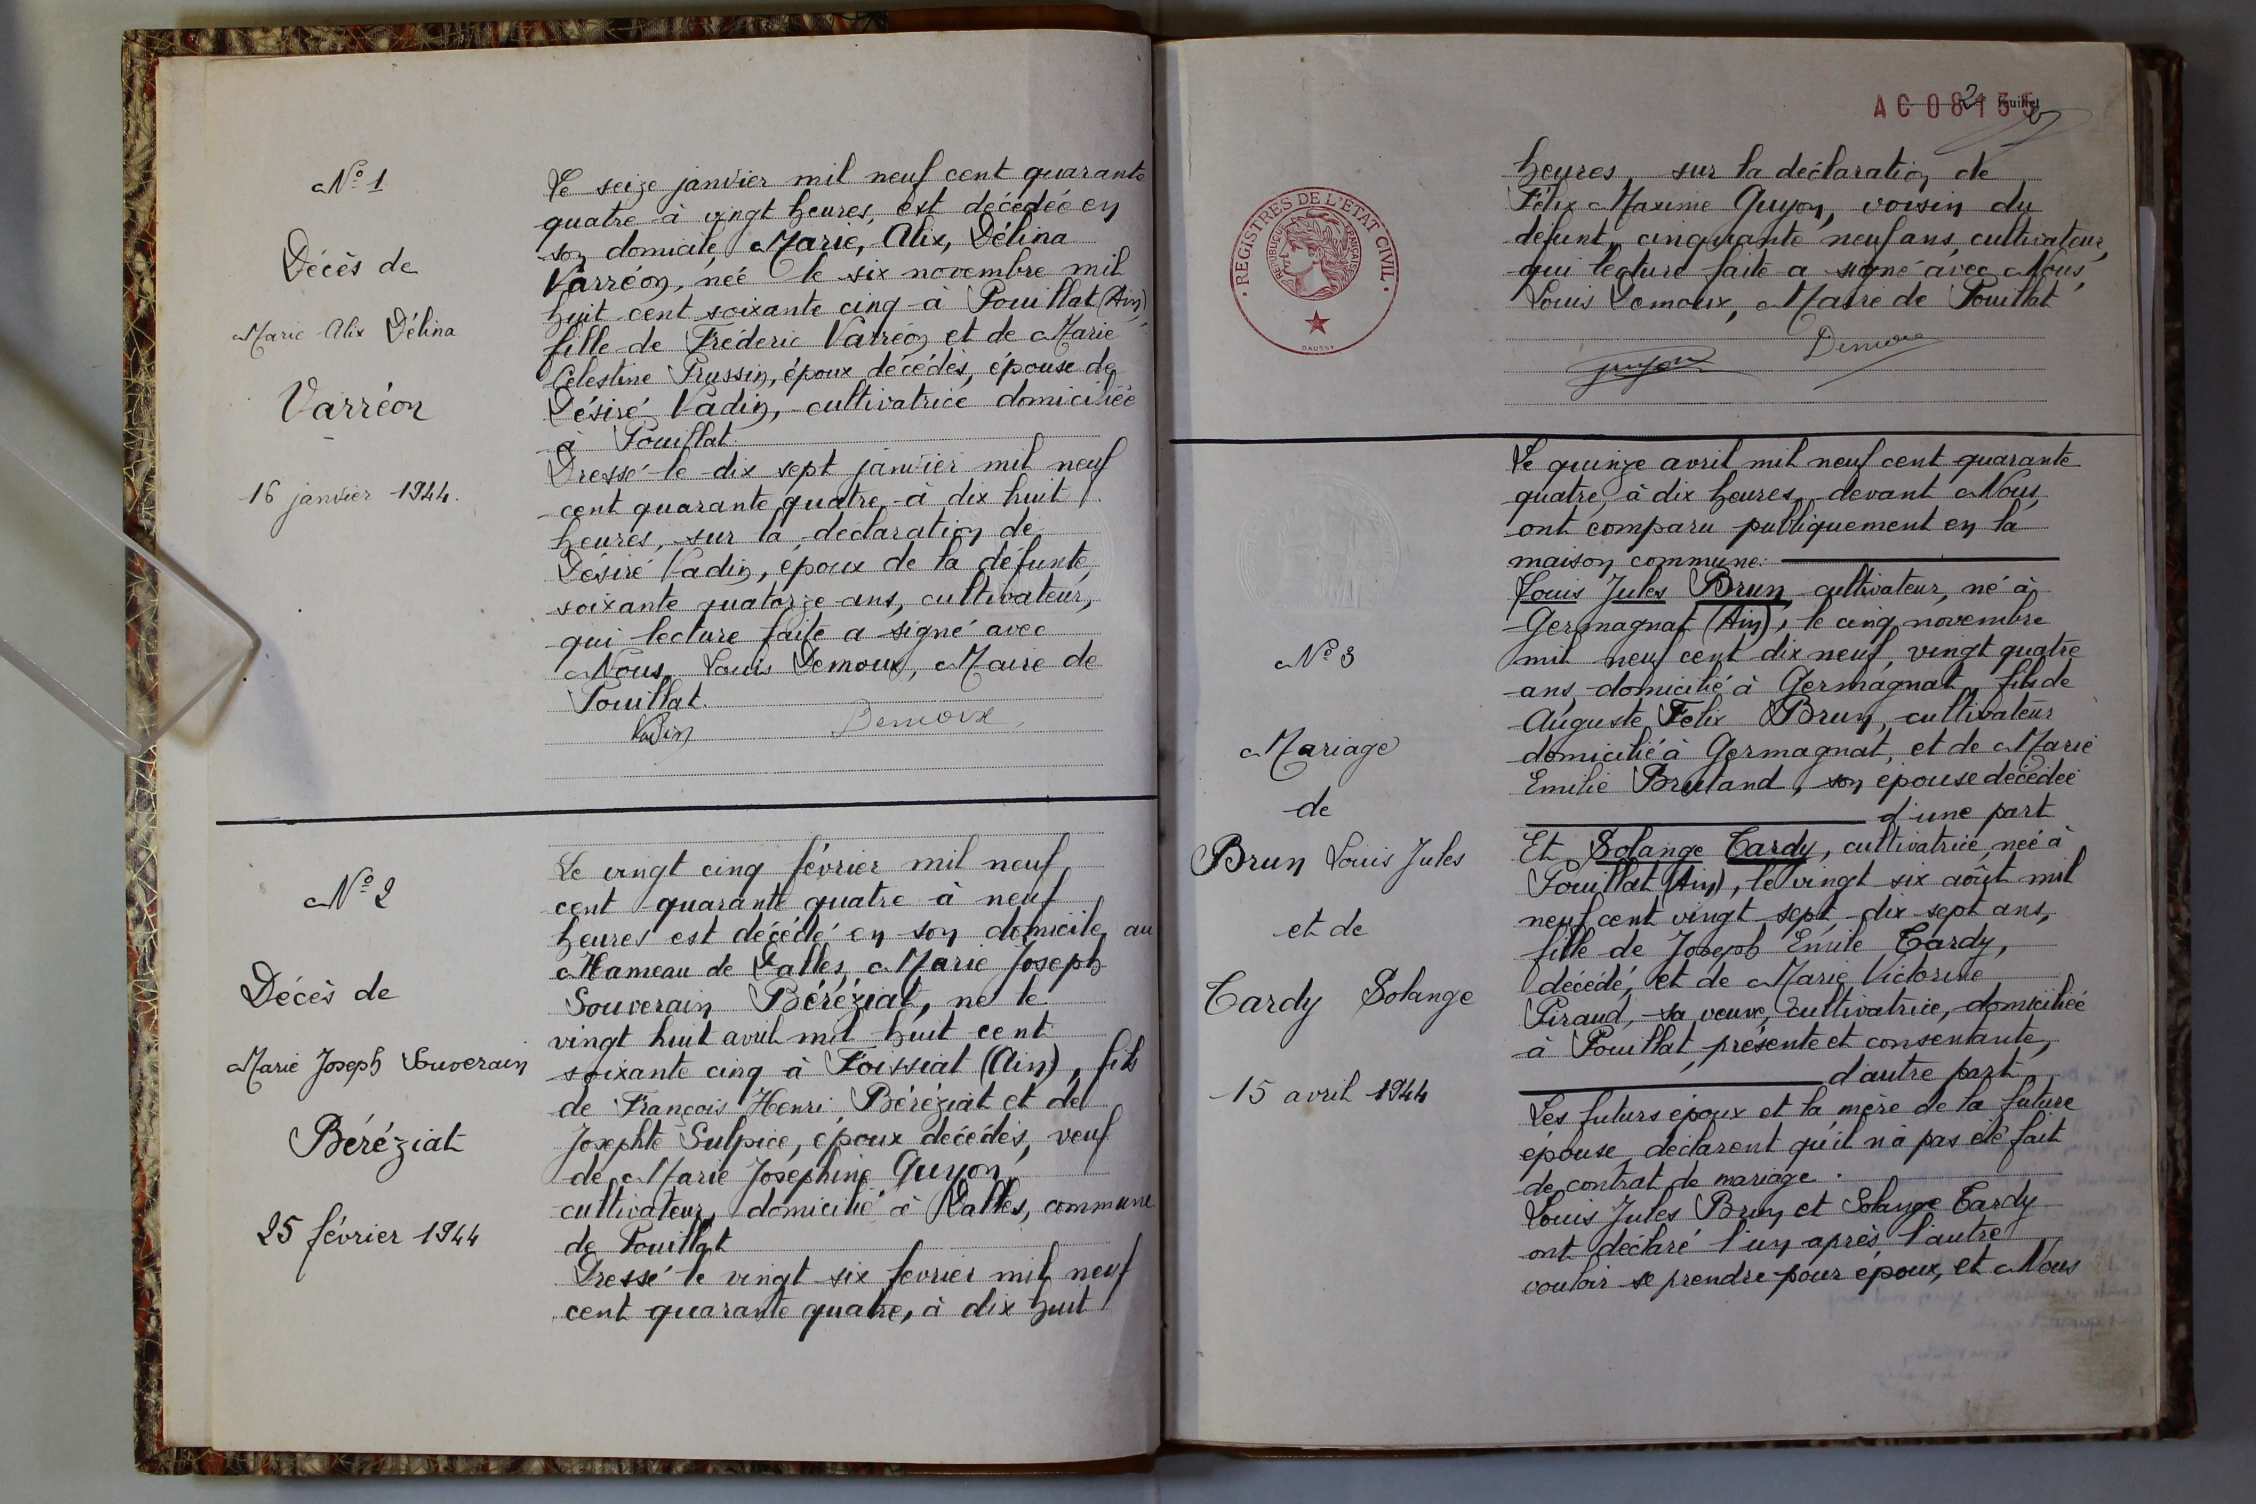 N° 1
Décès de
Marie Alix Délina
Varréon
16 janvier 1944.
Le seize janvier mil neuf cent quarante
quatre à vingt heures, est décédée en
son domicile, Marie, Alix, Délina
Varréon, née le six novembre mil
huit cent soixante cinq à Pouillat (Ain),
fille de Fréderic Varréon et de Marie
Célestine Prussin, époux décédés, épouse de
Désiré Vadin, cultivatrice domiciliée
à Pouillat.
Dressé le dix sept janvier mil neuf
cent quarante quatre à dix huit
heures, sur la déclaration de
Désiré Vadin, époux de la défunte,
soixante quatorze ans, cultivateur,
qui lecture faite a signé avec
Nous, Louis Demoux, Maire de
Pouillat.
Vadin Demoux
N° 2
Décès de
Marie Joseph Souverain
Béréziat
25 février 1944
Le vingt cinq février mil neuf
cent quarante quatre à neuf
heures est décédé en son domicile, au
Hameau de Lalles, Marie Joseph
Souverain Béréziat, né le
vingt huit avril mil huit cent
soixante cinq à Foissiat (Ain), fils
de François Henri Béréziat et de
Josephte Sulpice, époux décédés, veuf
de Marie Josephine Guyon,
cultivateur, domicilié à Lalles, commune
de Pouillat
Dressé le vingt six février mil neuf
cent quarante quatre, à dix huit
2 feuillet
AC 08135
REGISTRES DE L'ETAT CIVIL
REPUBLIQUE FRANÇAISE
DAUSSY
heures, sur la déclaration de
Félix Maxime Guyon, voisin du
défunt, cinquante neuf ans, cultivateur,
qui lecture faite a signé avec Nous,
Louis Demoux, Maire de Pouillat
Guyon Demoux
N° 3
Mariage
de
Brun Louis Jules
et de
Tardy Solange
15 avril 1944
Le quinze avril mil neuf cent quarante
quatre, à dix heures, devant Nous,
ont comparu publiquement en la
maison commune:
Louis Jules Brun cultivateur, né à
Germagnat (Ain), le cinq novembre
mil neuf cent dix neuf, vingt quatre
ans, domicilié à Germagnat, fils de
Auguste Felix Brun, cultivateur
domicilié à Germagnat, et de Marie
Emilie Bruland, son épouse décédée
d'une part
Et Solange Tardy, cultivatrice, née à
Pouillat (Ain), le vingt six août mil
neuf cent vingt sept, dix sept ans,
fille de Joseph Emile Tardy,
décédé, et de Marie Victorine
Piraud, sa veuve, cultivatrice, domiciliée
à Pouillat, présente et consentante,
d'autre part
Les futurs époux et la mère de la future
épouse, déclarent qu'il n'a pas été fait
de contrat de mariage.
Louis Jules Brun et Solange Tardy
ont déclaré l'un après l'autre
vouloir se prendre pour époux, et Nous